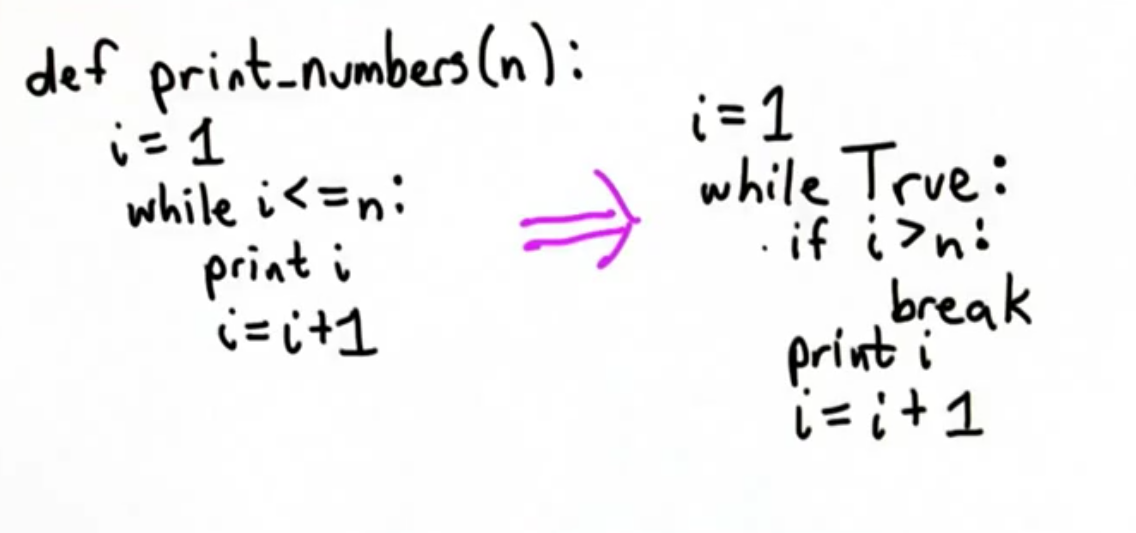 def print_numbers(n):
i = 1
while i <= n:
print i
i = i + 1
i = 1
while True:
if i > n:
break
print i
i = i + 1